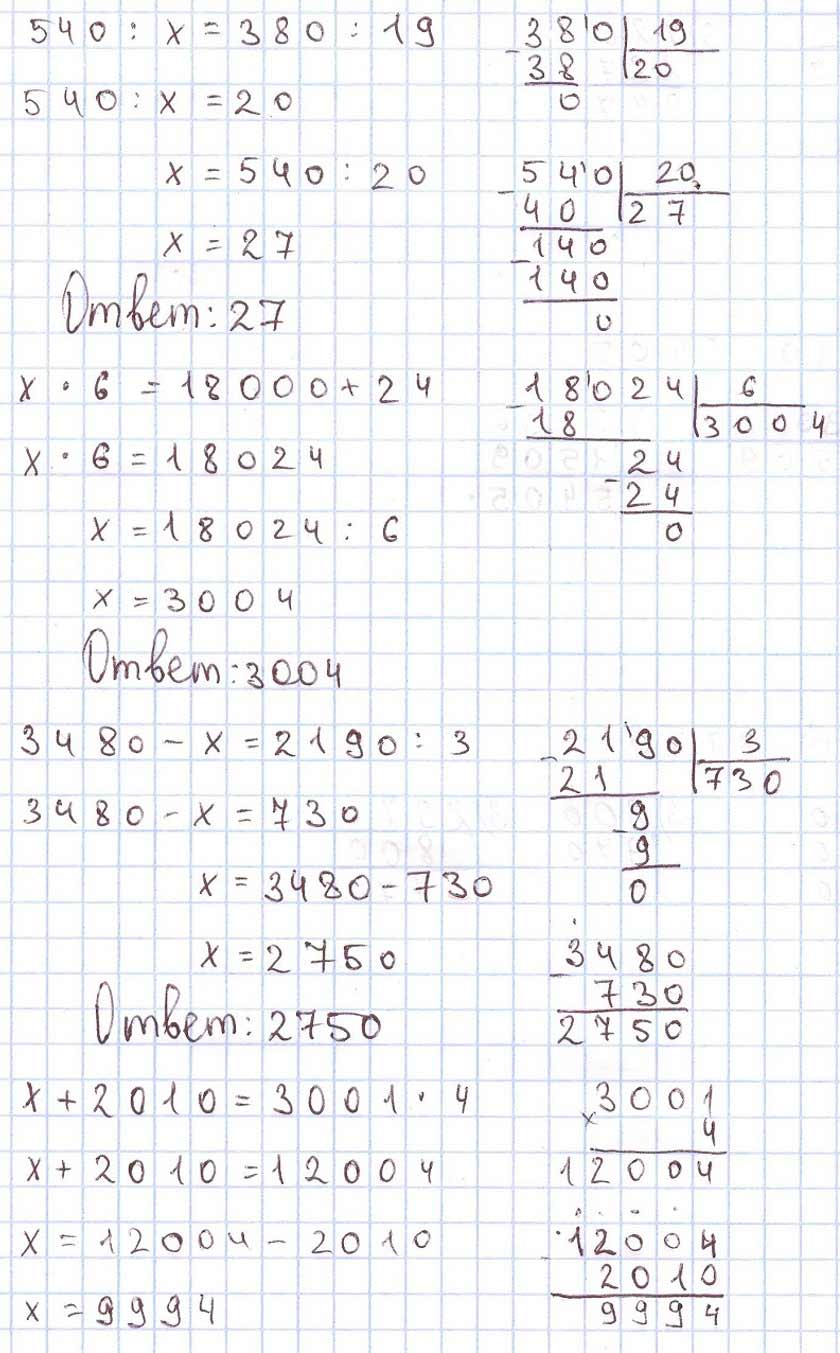 540 : x = 380 : 19
540 : x = 20
x = 540 : 20
x = 27
Ответ: 27
380 | 19
38 | 20
0
540 | 20
40 | 27
140
140
0
x · 6 = 18000 + 24
x · 6 = 18024
x = 18024 : 6
x = 3004
Ответ: 3004
18024 | 6
18 | 3004
24
24
0
3480 - x = 2190 : 3
3480 - x = 730
x = 3480 - 730
x = 2750
Ответ: 2750
2190 | 3
21 | 730
9
9
0
3480
- 730
2750
x + 2010 = 3001 · 4
x + 2010 = 12004
x = 12004 - 2010
x = 9994
3001
× 4
12004
12004
- 2010
9994